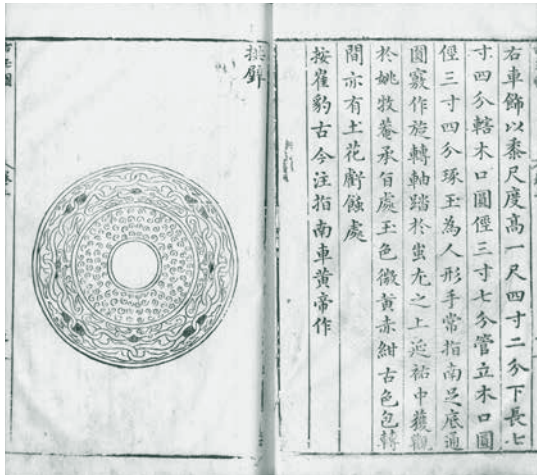 右車飾以黍尺度高一尺四寸二分下長七
寸四分轄木口圓俓三寸七分管立木口圓
俓三寸四分琢玉為人形手常指南足底通
圓竅作旋轉軸踏於蚩尤之上延祐中獲觀
於姚牧菴承旨處玉色微黃赤紺古色包轉
間亦有土花蝕處
按崔豹古今注指南車黃帝作
璧